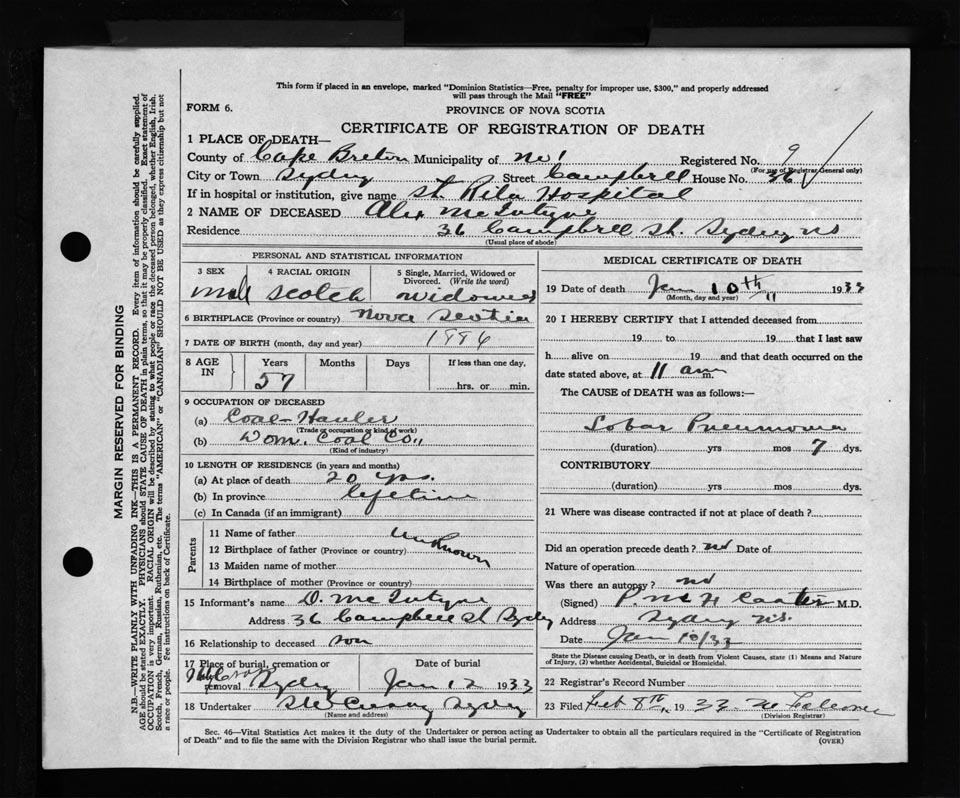 This form if placed in an envelope, marked "Dominion Statistics—Free, penalty for improper use, $300," and properly addressed
will pass through the Mail "FREE"
FORM 6.
PROVINCE OF NOVA SCOTIA
CERTIFICATE OF REGISTRATION OF DEATH
1 PLACE OF DEATH—
County of Cape Breton Municipality of Registered No. 9
(For use of Registrar General only)
City or Town Sydney Street Campbell House No. 36
If in hospital or institution, give name St. Rita Hospital
2 NAME OF DECEASED Alex McIntyre
Residence 36 Campbell St. Sydney NS
(Usual place of abode)
PERSONAL AND STATISTICAL INFORMATION
3 SEX 4 RACIAL ORIGIN 5 Single, Married, Widowed or Divorced. (Write the word)
Male Scotch Widowed
6 BIRTHPLACE (Province or country) Nova Scotia
7 DATE OF BIRTH (month, day and year)
8 AGE IN Years Months Days If less than one day,
57 hrs. or min.
9 OCCUPATION OF DECEASED
(a) Coal-Hauler
(Trade or occupation or kind of work)
(b) Dom. Coal Co.,
(Kind of industry)
10 LENGTH OF RESIDENCE (in years and months)
(a) At place of death 20 yrs.
(b) In province lifetime
(c) In Canada (if an immigrant)
Parents
11 Name of father unknown
12 Birthplace of father (Province or country)
13 Maiden name of mother
14 Birthplace of mother (Province or country)
15 Informant's name D. McIntyre
Address 36 Campbell St Sydney
16 Relationship to deceased son
17 Place of burial, cremation or removal Date of burial
Sydney Jan 12 1933
18 Undertaker Sydney
(Name and address)
MEDICAL CERTIFICATE OF DEATH
19 Date of death Jan 10th 1933
(Month, day and year)
20 I HEREBY CERTIFY that I attended deceased from
19 to 19 that I last saw
h alive on 19 and that death occurred on
date stated above, at 11 am m.
The CAUSE OF DEATH was as follows:—
Lobar Pneumonia
(duration) yrs mos 7 dys.
CONTRIBUTORY
(duration) yrs mos dys.
21 Where was disease contracted if not at place of death?
Did an operation precede death? no Date of
Nature of operation
Was there an autopsy? no
(Signed) M.D.
Address Sydney NS.
Date Jan 10/33
State the Disease causing Death, or in death from Violent Causes, state (1) Means and Nature
of Injury, (2) whether Accidental, Suicidal or Homicidal.
22 Registrar's Record Number
23 Filed Feb 8th, 19 33
(Division Registrar)
Sec. 46—Vital Statistics Act makes it the duty of the Undertaker or person acting as Undertaker to obtain all the particulars required in the "Certificate of Registration
of Death" and to file the same with the Division Registrar who shall issue the burial permit. (OVER)
MARGIN RESERVED FOR BINDING
N.B.—WRITE PLAINLY WITH UNFADING INK—THIS IS A PERMANENT RECORD. Every item of information should be carefully supplied.
AGE should be stated EXACTLY. PHYSICIANS should STATE CAUSE OF DEATH in plain terms, so that it may be properly classified. Exact statement of
OCCUPATION is very important. RACIAL ORIGIN will be described by stating to what people or race the deceased person belonged, whether English, Irish,
Scotch, French, German, Russian, Ruthenian, etc. The terms "AMERICAN" or "CANADIAN" SHOULD NOT BE USED as they express citizenship but not
a race or people. See instructions on back of Certificate.